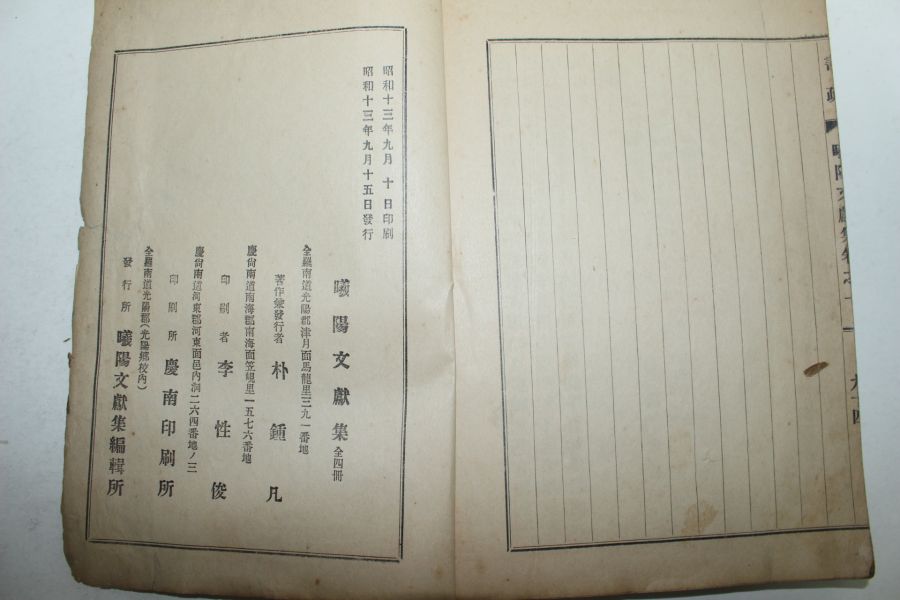 曦陽文獻集卷之十一
九十四
昭和十三年九月十日印刷
昭和十三年九月十五日發行
曦陽文獻集 全四冊
全羅南道光陽郡津月面馬龍里三九一番地
著作兼發行者 朴鍾凡
慶尙南道南海郡南海面笠峴里一五七六番地
印刷者 李性俊
慶尙南道河東郡河東面邑內洞二六四番地ノ三
印刷所 慶南印刷所
全羅南道光陽郡(光陽鄕校內)
發行所 曦陽文獻集編輯所